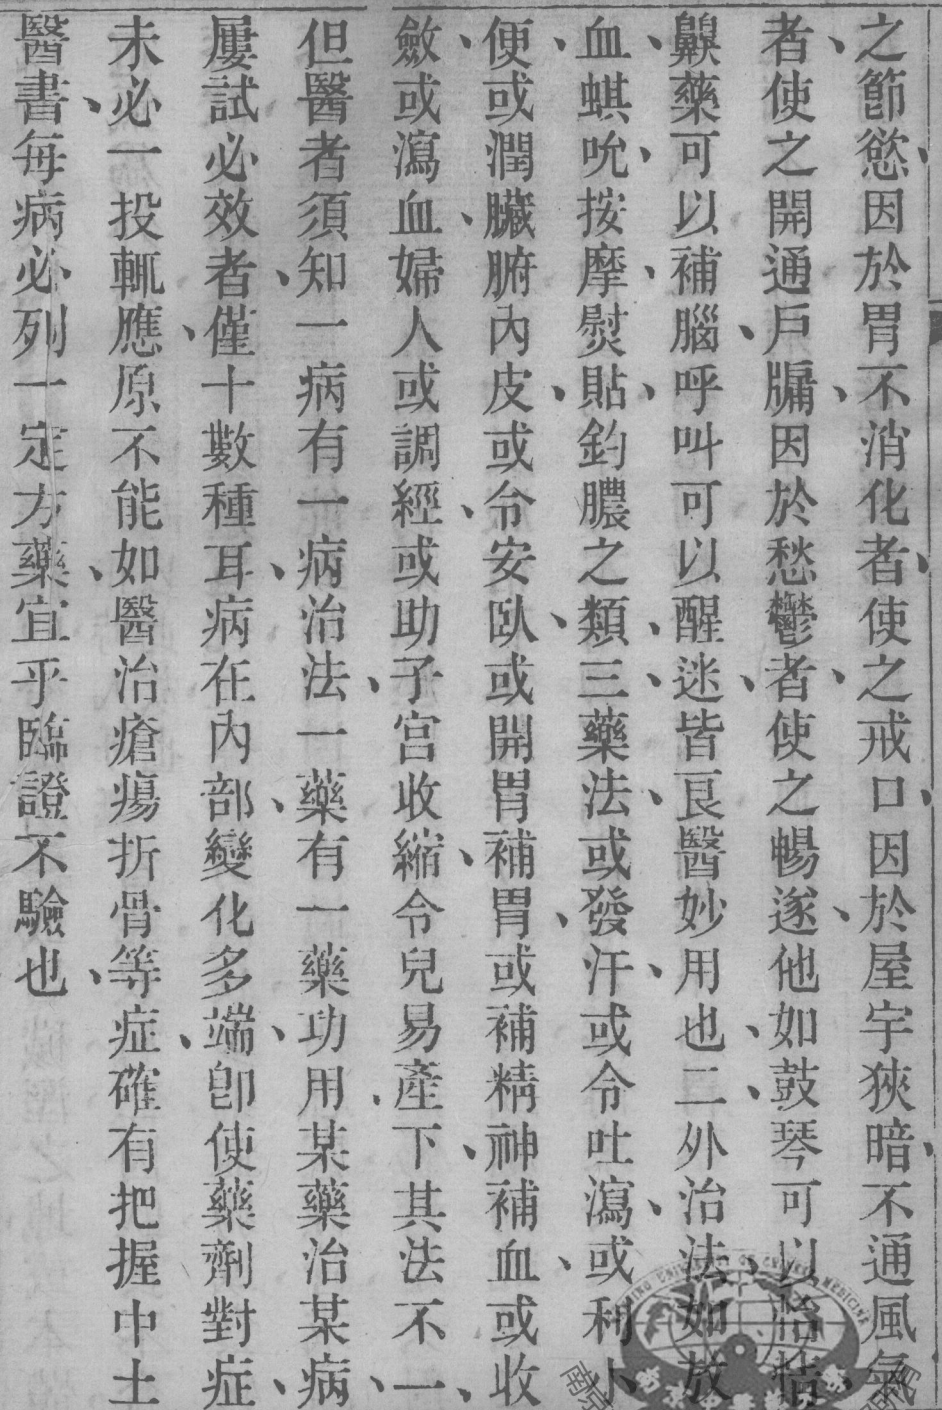 之節慾、因於胃不消化者、使之戒口、因於屋宇狹暗、不通風氣
者、使之開通戶牖、因於愁鬱者、使之暢遂、他如鼓琴可以怡情、
鼾藥可以補腦、呼叫可以醒迷、皆良醫妙用也、二、外治法、如放
血、蜞吮、按摩、熨貼、釣膿之類、三、藥法、或發汗、或令吐瀉、或利小
便、或潤臟腑內皮、或令安臥、或開胃補胃、或補精神補血、或收
斂、或瀉血、婦人或調經、或助子宮收縮、令兒易產下、其法不一、
但醫者須知一病有一病治法、一藥有一藥功用、某藥治某病、
屢試必效者、僅十數種耳、病在內部、變化多端、卽使藥劑對症、
未必一投輒應、原不能如醫治瘡瘍折骨等症、確有把握、中土
醫書、每病必列一定方藥、宜乎臨證不驗也、
UNIVERSITY OF CHINESE MEDICINE
南京